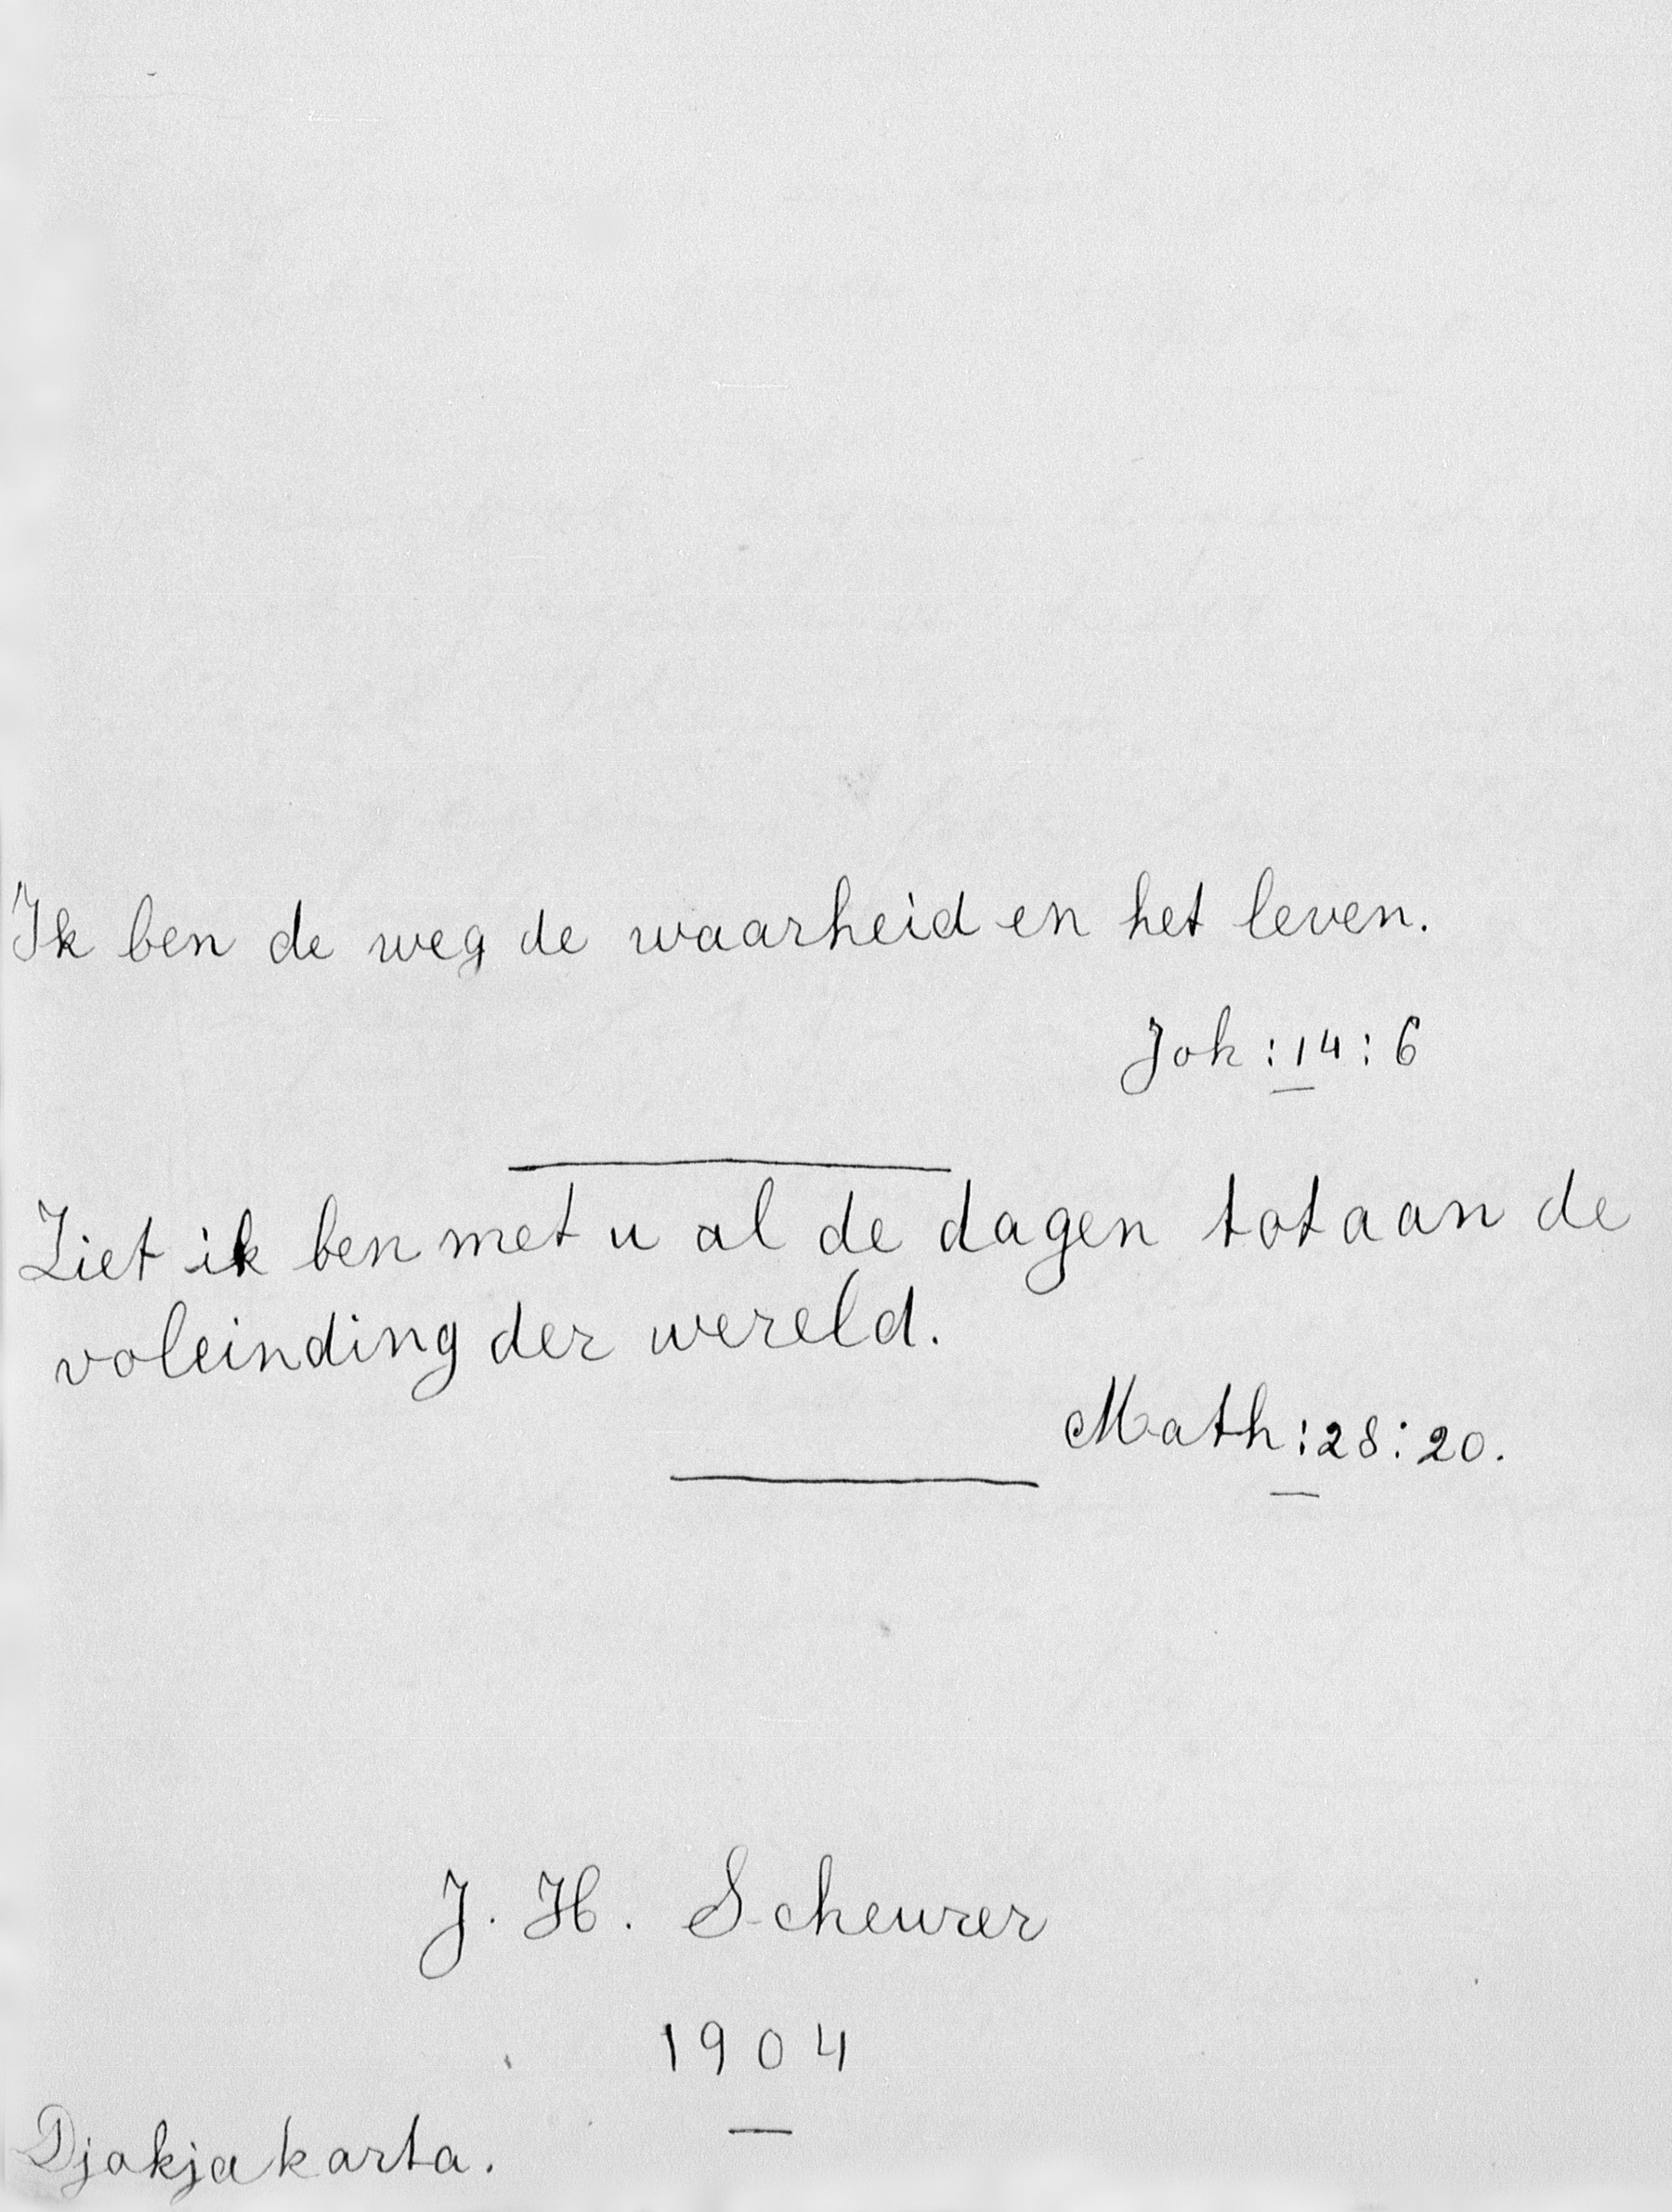 Ik ben de weg de waarheid en het leven.
Joh : 14 : 6
Ziet ik ben met u al de dagen tot aan de
voleinding der wereld.
Math : 28 : 20.
J. H. Scheurer
1904
Djokjakarta.